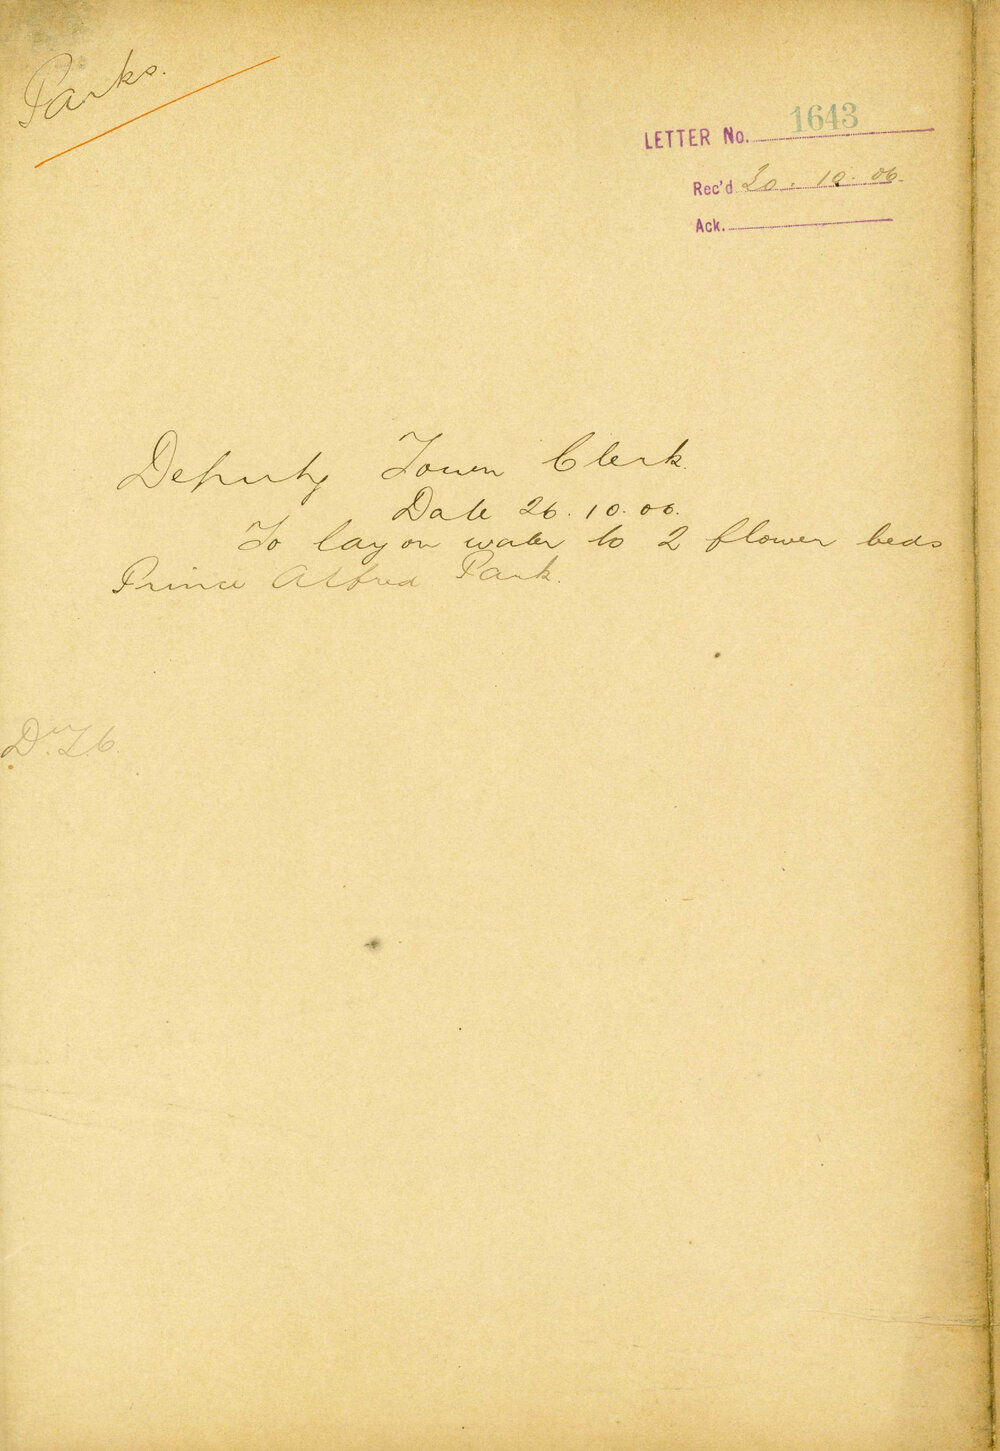 Parks.
LETTER No. 1643
Rec'd 30. 10. 06.
Ack.
Deputy Town Clerk.
Date 26. 10. 06.
To lay on water to 2 flower beds
Prince Alfred Park.